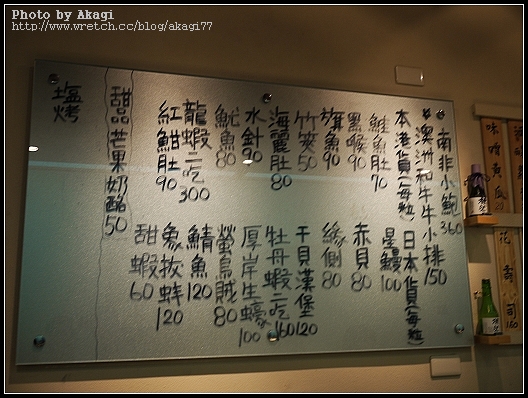 Photo by Akagi
http://www.wretch.cc/blog/akagi77
南非小鮑 360
澳洲和牛牛小排 150
本港貨(每粒)
鮭魚肚 70
黑喉 90
旗魚 90
竹筴 50
海麗肚 80
水針 90
魷魚 80
龍蝦二吃 300
紅魽肚 90
日本貨(每粒)
星鰻 100
赤貝 80
緣側 80
干貝漢堡 120
牡丹蝦二吃 160
厚岸生蠔 100
螢烏賊 80
鯖魚 120
象拔蚌 120
甜蝦 60
甜品 芒果奶酪 50
塩烤
味噌黃瓜
花壽司